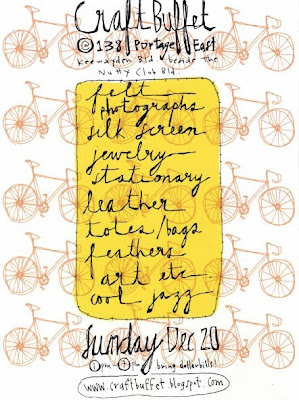 Craft Buffet
@ 138 Portage East
Keewayden Bld. beside the
Nutty Club Bld.
felt
photographs
silk screen
jewelry
stationary
leather
totes/bags
feathers
art etc
cool jazz
Sunday Dec 20
1pm - 7pm bring dollarbills!
www.craftbuffet.blogspot.com